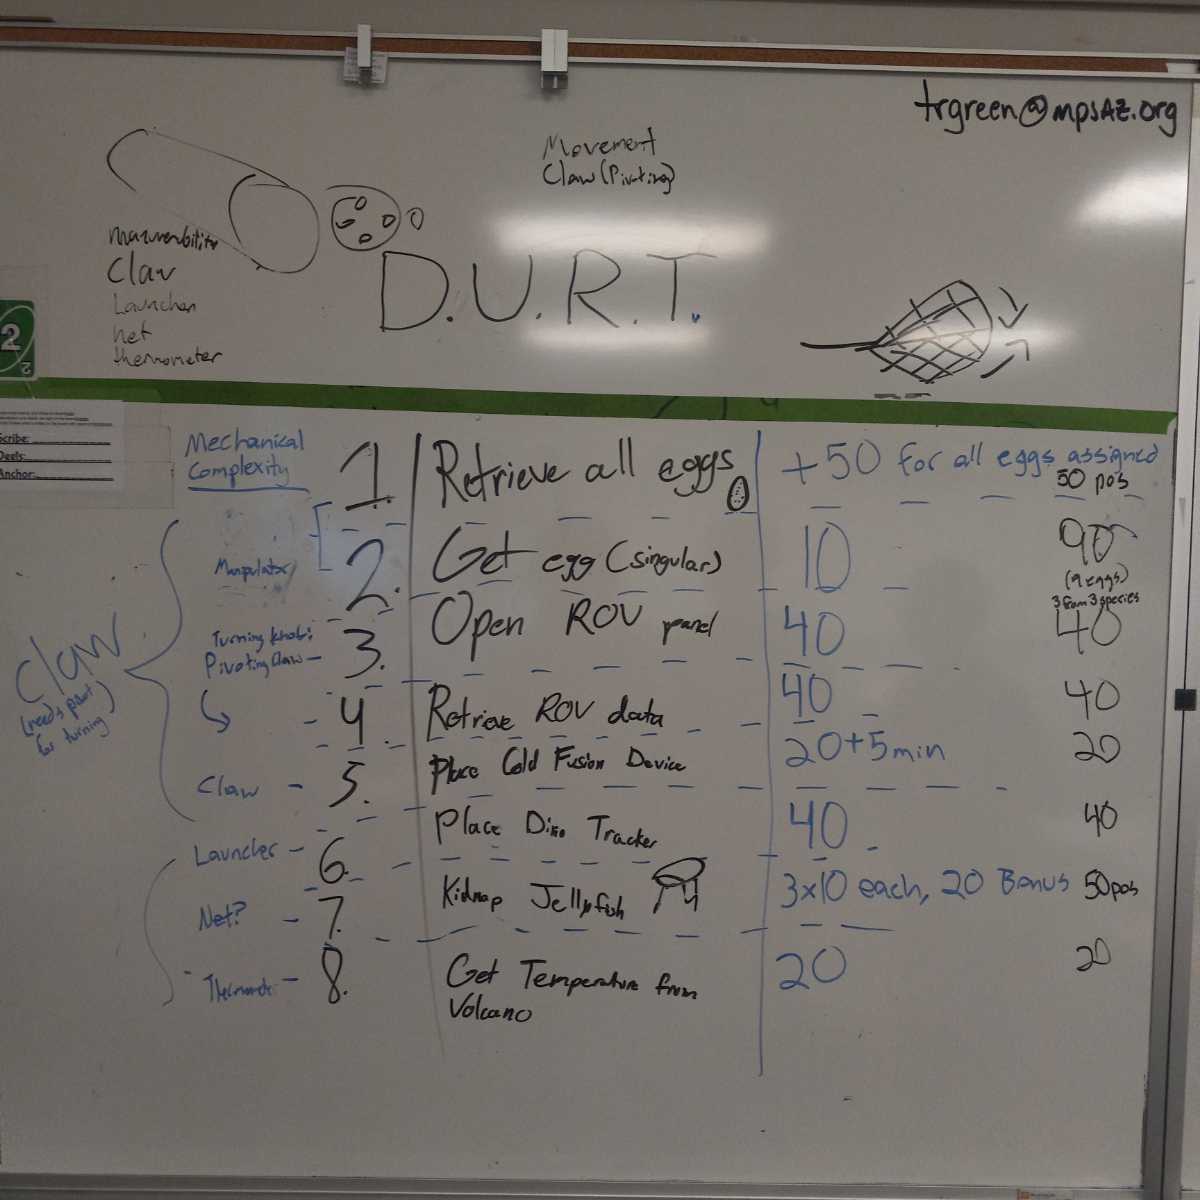 trgreen@mpsAZ.org
Movement
Claw (Pivoting)
Claw
Launcher
net
thermometer
D.U.R.T.
2
Scribe:
Anchor:
Mechanical
Complexity
1. Retrieve all eggs +50 for all eggs assigned 50 pos
Manipulator 2. Get egg (singular) 10 90
(9 eggs)
3 from 3 species
Turning knob:
Pivoting Claw – 3. Open ROV panel 40 40
– 4. Retrieve ROV data 40 40
Claw – 5. Place Cold Fusion Device 20+5min 20
Launcher – 6. Place Dino Tracker 40 40
Net? – 7. Kidnap Jellyfish 3x10 each, 20 Bonus 50pos
8. Get Temperature from 20 20
Volcano
Claw
(needs part
for turning)